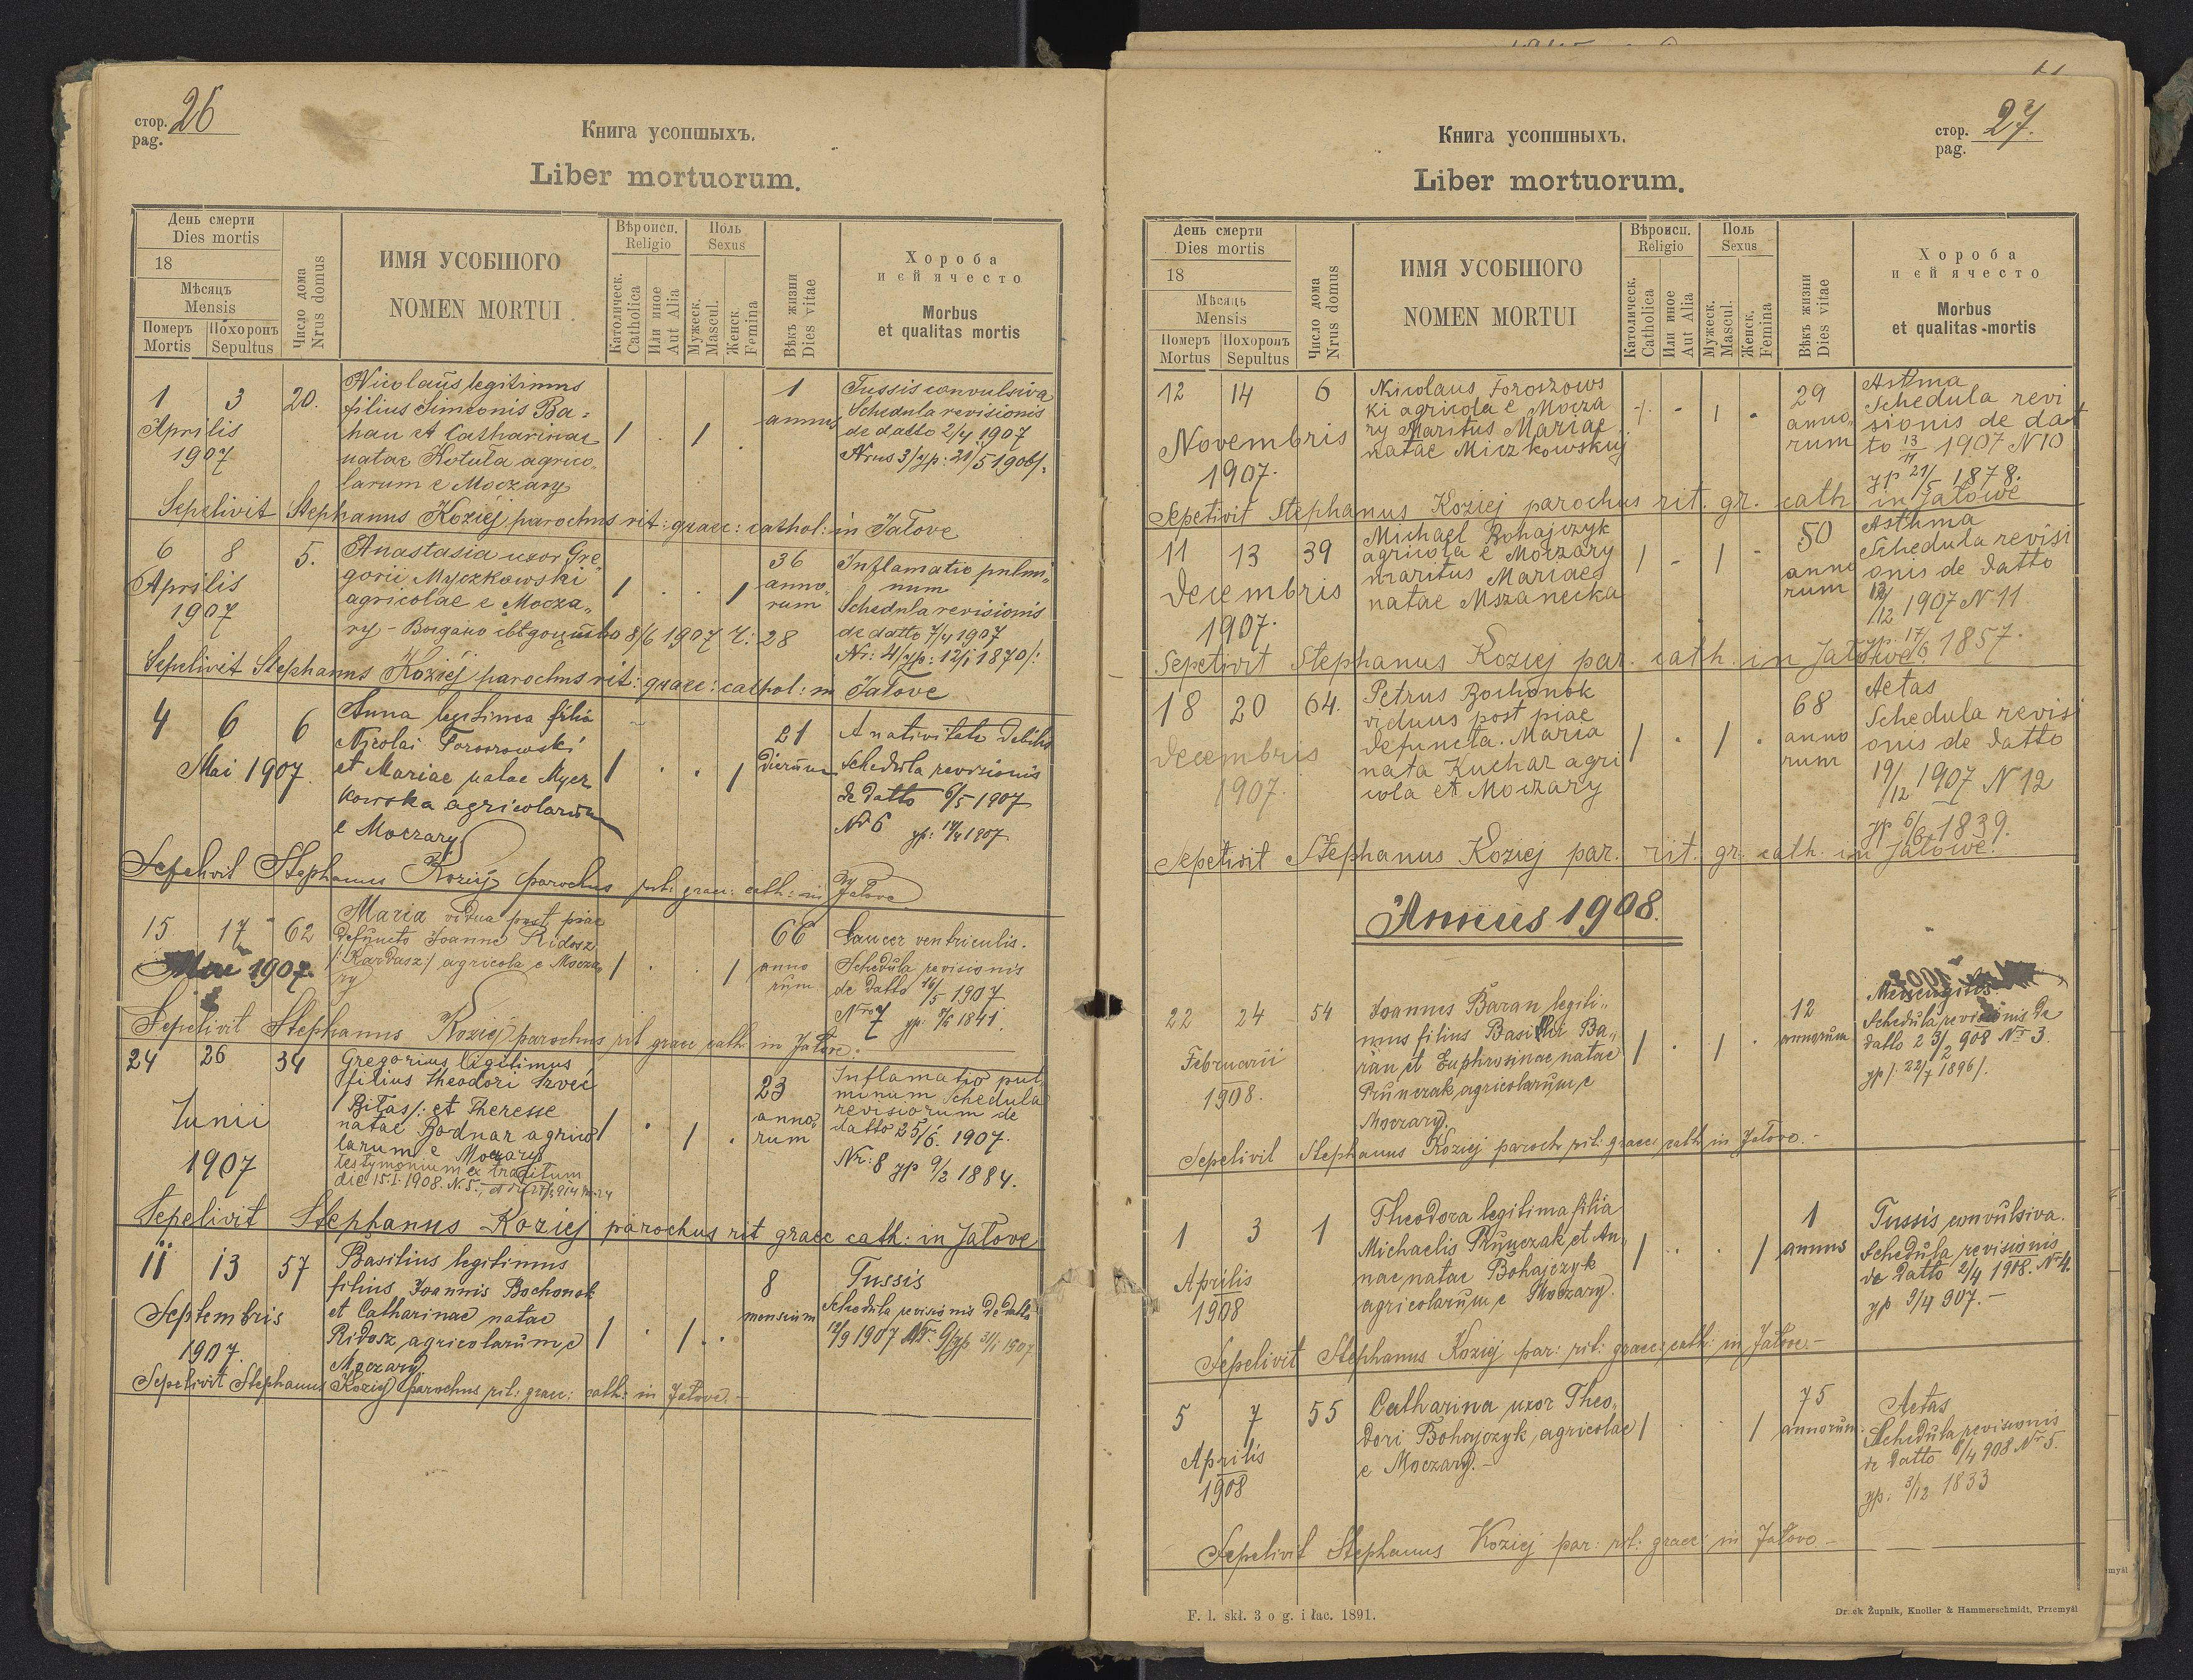 стор. 26
pag.
Книга усопшыхъ.
Liber mortuorum.
День смерти
Dies mortis
18
Мѣсяцъ
Mensis
Померъ Похоронъ
Mortis Sepultus
Число дома
Nrus domus
ИМЯ УСОБШОГО
NOMEN MORTUI
Вѣроисп.
Religio
Католическ.
Catholica
Или иное
Aut Alia
Поль
Sexus
Мужеск.
Mascul.
Женск.
Femina
Вѣкъ жизни
Dies vitae
Хороба
и єй ячесто
Morbus
et qualitas mortis
1 3 20. Nicolaus legitimus 1 Tussis convulsiva
filius Simeonis Ba= annus Schedula revisionis
Aprilis han et Catharinae 1 . 1 . de datto 2/4 1907
1907 natae Kotula agrico„ Nrus 3/yp: 21/5 1906/.
larum e Moczary
Sepelivit Stephanus Koziej parochus rit: graec: cathol: in Jałove
6 8 5. Anastasia uxor Gre„ 36 Inflamatio pulmi„
Aprilis gorii Myczkowski 1 . . 1 anno„ num
1907 agricolae e Mocza„ rum Schedula revisionis
ry - Выдано свѣдоцтво 8/6 1907 Ч: 28 de datto 7/4 1907
Nr: 4/yp: 12/1 1870/:
Sepelivit Stephanus Koziej parochus rit: graec: cathol: in Jałove
4 6 6 Anna legitima filia 21 A nativitate debilis
Nicolai Foroszowski dierum Schedula revisionis
Mai 1907. et Mariae natae Mycz 1 . . 1 de datto 6/5 1907
kowska agricolarum Nr 6 yp: 14/4 1907
e Moczary
Sepelivit Stephanus Koziej parochus rit: graec: cath: in Jałove
15 17 62 Maria vidua post piae 66 Cancer ventriculis.
defuncto Joanne Ridosz
Mai 1907. /:Kardasz:/ agricola e Mocza„ 1 . . 1 anno Schedula revisionis
ry rum de datto 16/5 1907
Nro 7 yp: 1841.
Sepelivit Stephanus Koziej parochus rit graec cath: in Jałove:
24 26 34 Gregorius legitimus 23 Inflamatio pul
filius Theodori Szvec minum Schedula
Iunii Bitas/: et Theresse anno„ revisiorum de
natae Bodnar agrico 1 . 1 . rum datto 25/6. 1907.
1907 larum e Moczary Nr: 8 yp 9/2 1884.
testymonium ex traditum
die 15.I.1908. N.5.,
Sepelivit Stephanus Koziej parochus rit graec cath: in Jałove
11 13 57 Basilius legitimus 8 Tussis
filius Joannis Bochonok
Septembris et Catharinae natae mensium Schedula revisionis de datto
1907. Ridosz, agricolarum, e 1 . 1 . 12/9 1907 Nr: 9/yp 31/1 1907
Moczary
Sepelivit Stephanus Koziej parochus rit: graec: cath: in Jałove.-
стор. 27.
pag.
Книга усопшныхъ.
Liber mortuorum.
День смерти
Dies mortis
18
Мѣсяць
Mensis
Померъ Похоронъ
Mortus Sepultus
Число дома
Nrus domus
ИМЯ УСОБШОГО
NOMEN MORTUI
Вѣроисп.
Religio
Католическ.
Catholica
Или иное
Aut Alia
Поль
Sexus
Мужеск.
Mascul.
Женск.
Femina
Вѣкъ жизни
Dies vitae
Хороба
и єй ячесто
Morbus
et qualitas-mortis
12 14 6 Nicolaus Foroszows 29 Astma
ki agricola e Mocza 1 - 1 - anno„ Schedula revi
Novembris ry Maritus Mariae rum sionis de dat
1907. natae Miczkowskij to 13/11 1907 N 10
yp 21/5 1878.
Sepetivit Stephanus Koziej parochus rit. gr. cath in Jałowe
11 13 39 Michael Bohajczyk 50 Asthma
agricola e Moczary 1 - 1 - anno Schedula revisi
Decembris maritus Mariaes rum onis de datto
1907. natae Mszanecka 12/12 1907 N 11
yp. 17/6 1857.
Sepetivit Stephanus Koziej par. cath. in Jałowe
18 20 64. Petrus Bochonok 68 Aetas
viduus post piae Schedula revisi
Decembris defuncta. Maria 1 . 1 . anno onis de datto
1907. nata Kuchar agri rum 19/12 1907 N 12
cola et Moczary yp 5/6 1839.
Sepetivit Stephanus Koziej par. rit. gr. cath. in Jałowe.
Annus 1908.
22 24 54 Joannes Baran legiti„ 12 Meningitis
mus filius Basilii Ba„ annorum Schedula revisionis de
Februarii ran et Euphrosinae natae 1 . 1 . datto 23/2 908 Nr 3.
1908. Prunczak, agricolarum, e yp/: 22/7 1896/.
Moczary.
Sepelivit Stephanus Koziej paroch rit: graec: cath in Jałove.-
1 3 1 Theodora legitima filia 1 Tussis convulsiva.
Michaelis Prunczak, et An„ 1 . . 1 annus Schedula revisionis
Aprilis nae, natae Bohajczyk de datto 2/4 1908. Nr 4.
1908 agricolarum, e Moczary. yp 9/4 907.-
Sepelivit Stephanus Koziej par: rit: graec: cath: in Jałove.-
5 7 55 Catharina uxor Theo„ 75 Aetas
dori Bohajczyk, agricolae 1 . . 1 annorum. Schedula revisionis
Aprilis e Moczary.- de datto 6/4 908 Nr 5.
1908 yp: 3/12 1833
Sepelivit Stephanus Koziej par: rit: graec: in Jałove.-
F. l. skł. 3 o g. i łac. 1891.
Druck Żupnik, Knoller & Hammerschmidt, Przemyśl